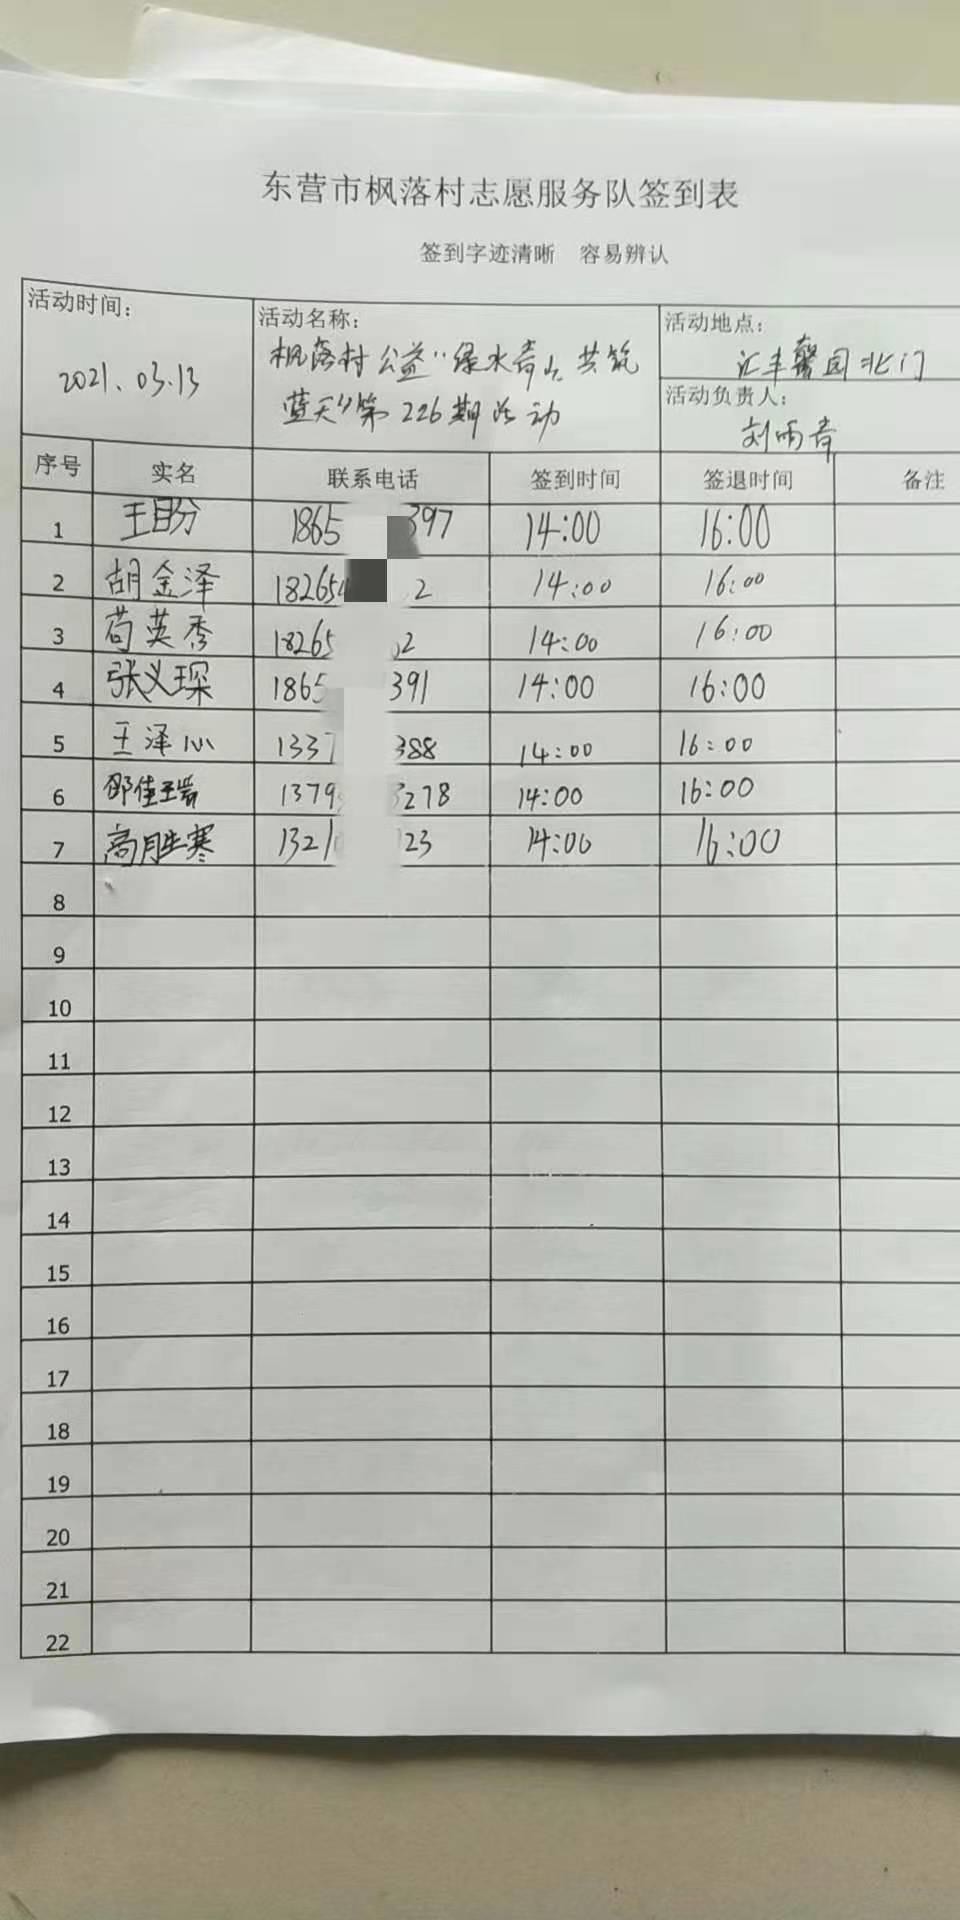 东营市枫落村志愿服务队签到表
签到字迹清晰 容易辨认
活动时间：
2021.03.13
活动名称：
枫落村公益"绿水青山 共筑
蓝天"第226期活动
活动地点：
汇丰馨园北门
活动负责人：
刘雨奇
序号 实名 联系电话 签到时间 签退时间 备注
1 1865 397 14:00 16:00
2 胡金泽 18265 2 14:00 16:00
3 苟英秀 18265 2 14:00 16:00
4 张义琛 1865 391 14:00 16:00
5 王泽心 1337 388 14:00 16:00
6 邵佳瑞 1379 3278 14:00 16:00
7 高胜寒 1321 123 14:00 16:00
8
9
10
11
12
13
14
15
16
17
18
19
20
21
22